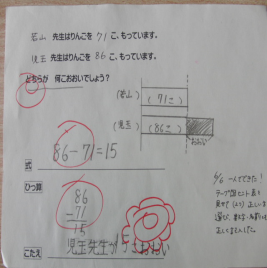 若山 先生はりんごを 71 こ、もっています。
児玉 先生はりんごを 86 こ、もっています。
どちらが 何こおおいでしょう?
(若山)
(71こ)
(児玉)
(86こ)
おおい
式
86-71=15
ひっ算
86
-71
15
こたえ 児玉先生が15こおおい
一人でできた!